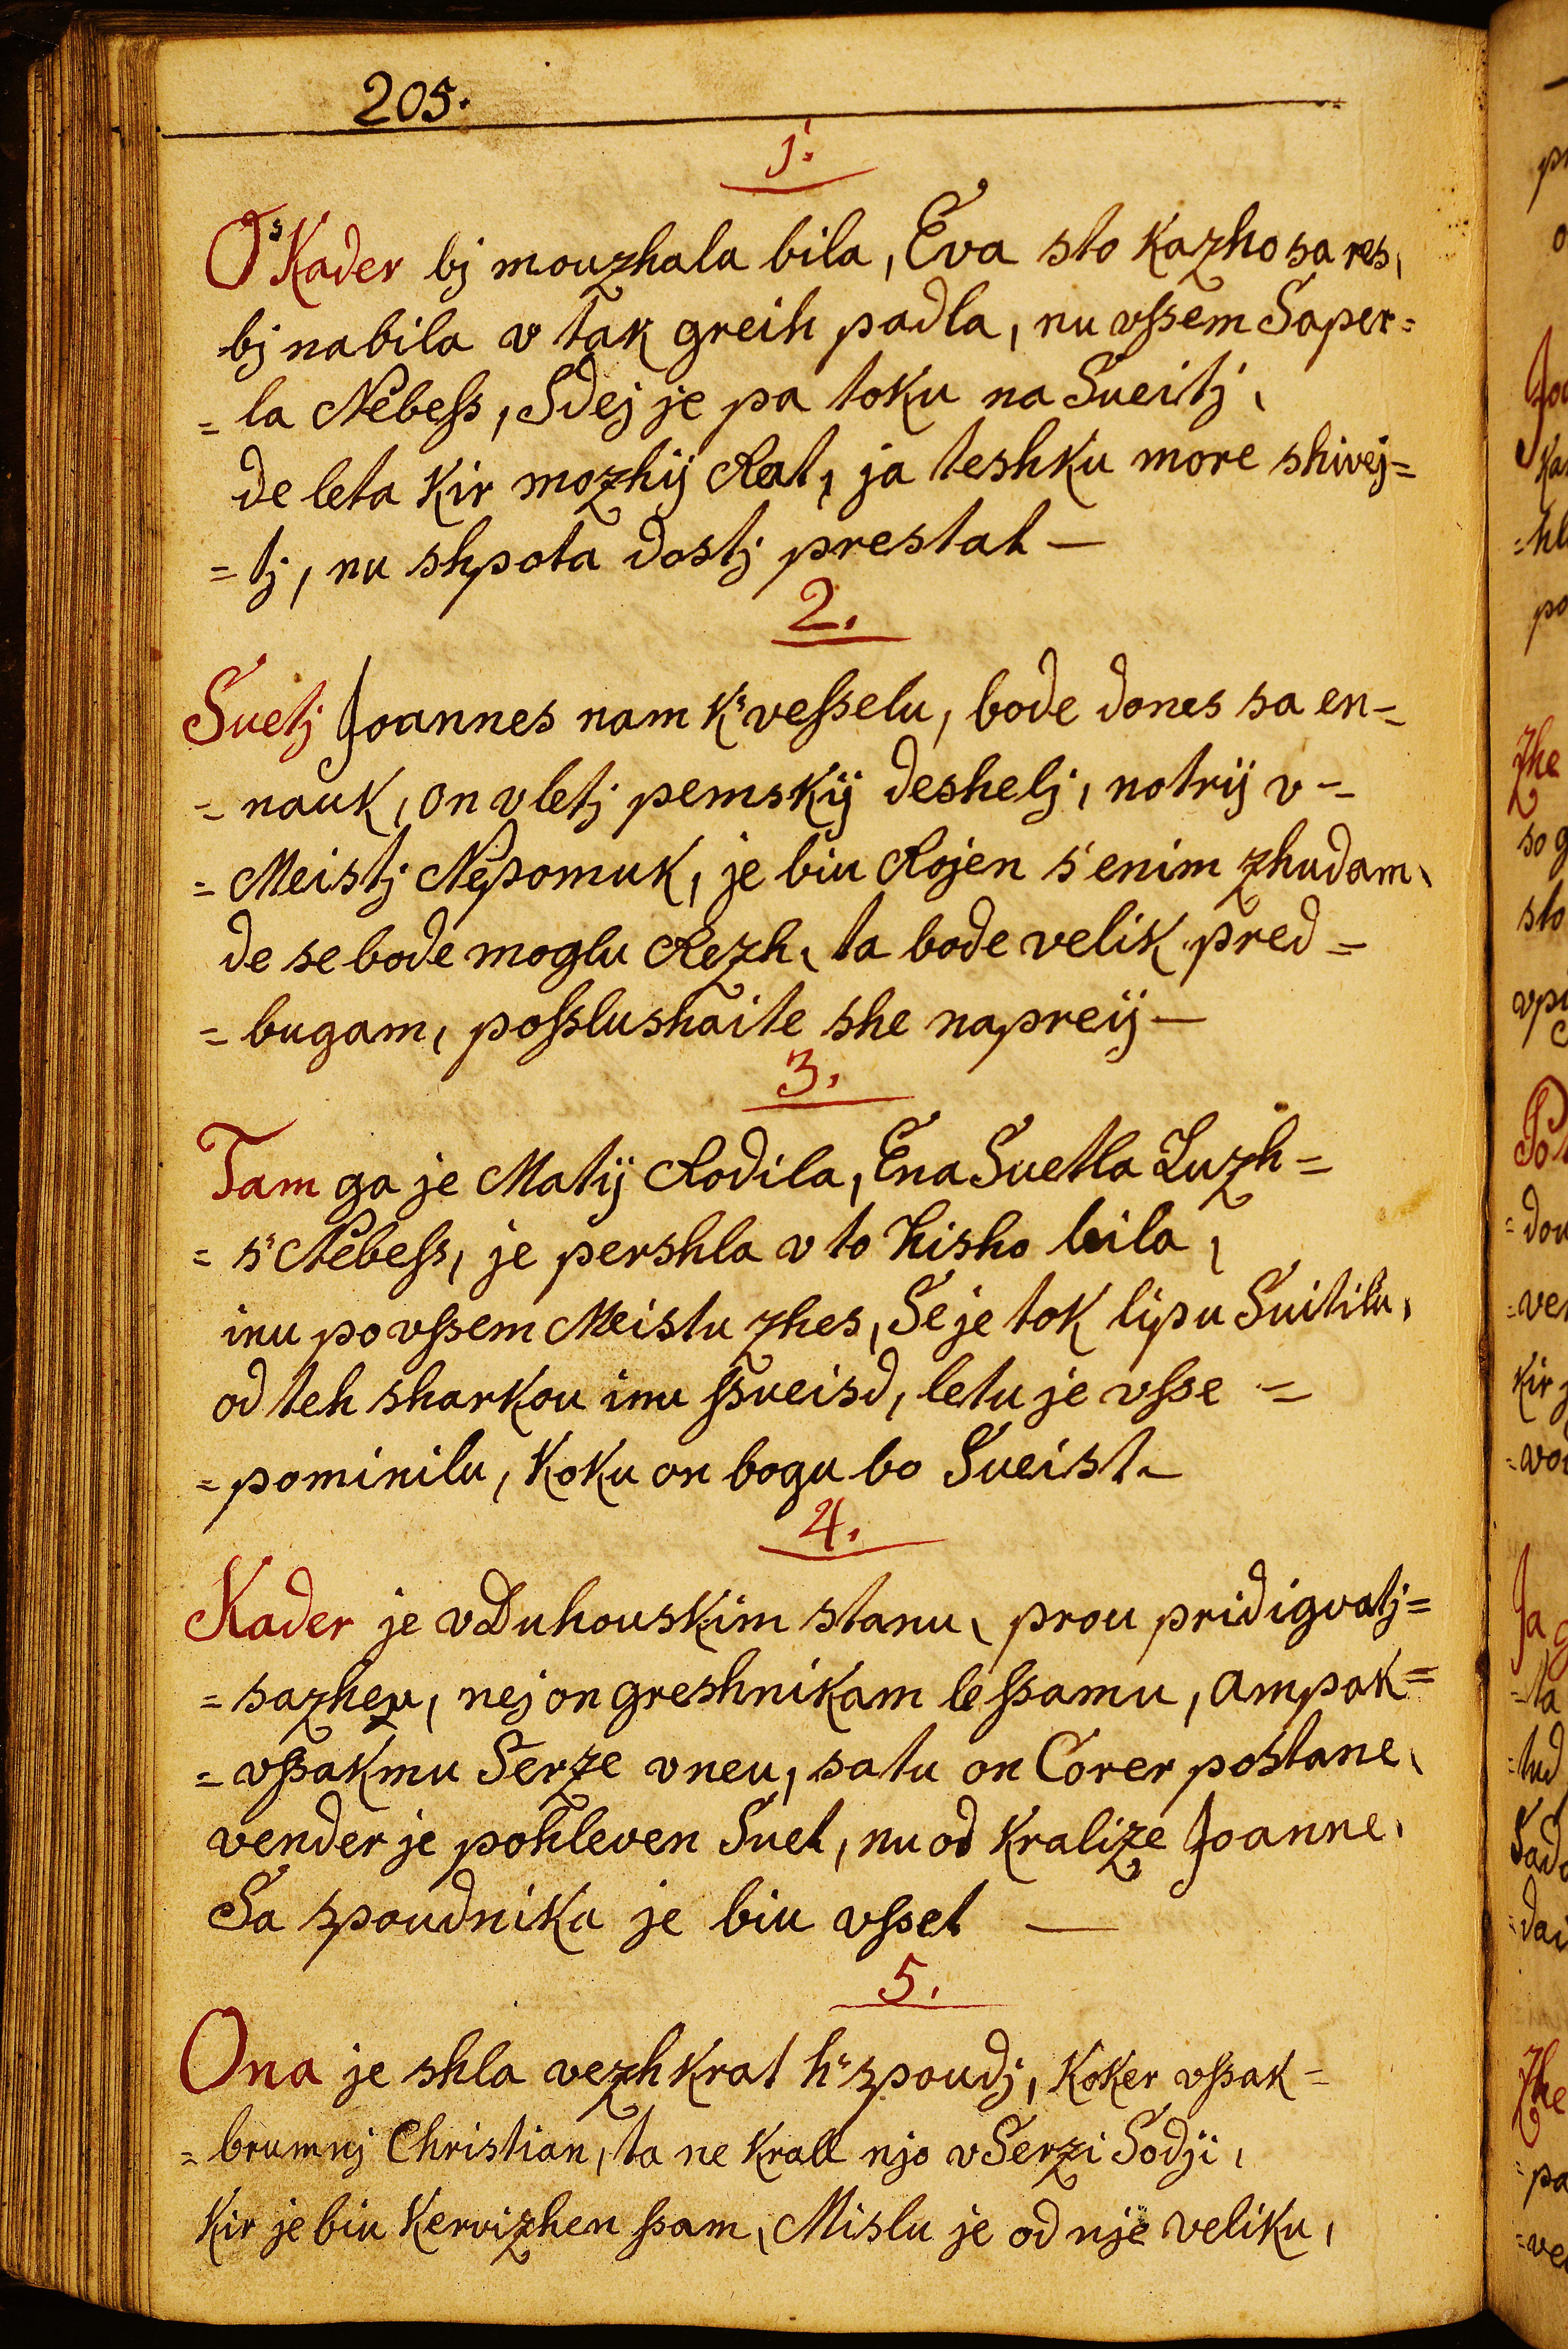 205.
1.
O Kader bj mouzhala bila, Eva sto kazho sa res,
bj nabila v tak greih padla, nu vſsem Saper=
= la Nebeſs, Sdej je pa toku na Sueitj,
de leta kir mozhij Rat, ja teshku more shivej=
= tj, nu shpota dostj prestat —
2.
Suetj Joannes nam k' veſselu, bode dones sa en=
= nauk, on vletj pemskij deshelj, notrij v =
= Meistj Nepomuk, je biu Rojen s' enim zhudam,
de se bode moglu Rezh, ta bode velik pred =
= bugam, poſslushaite she napreij —
3.
Tam ga je Matij Rodila, Ena Suetla Luzh =
= s' Nebeſs, je pershla v to hisho bila,
inu po vſsem Meistu zhes, Se je tok lipu Suitilu,
od teh sharkou inu ſsueisd, letu je vſse =
= pominilu, koku on bogu bo Sueist —
4.
Kader je v Duhouskim stanu, prou pridigvatj =
= sazheu, nej on greshnikam le ſsamu, ampak =
= vſsakmu Serze vneu, satu on Corer postane,
vender je pohleven Suet, nu od Kralize Joanne,
Sa spoudnika je biu vſset —
5.
Ona je shla vezhkrat h' spoudj, koker vſsak =
= brumnj Christian, ta ne krall njo v Serzi Sodji,
kir je biu kervizhen ſsam, Mislu je od nje veliku,